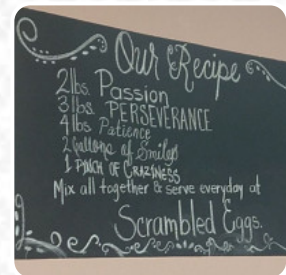 Our Recipe
2 lbs. Passion
3 lbs. PERSEVERANCE
4 lbs. Patience
2 Gallons of Smiles
1 PINCH OF CRAZINESS
Mix all together & serve everyday at
Scrambled Eggs.